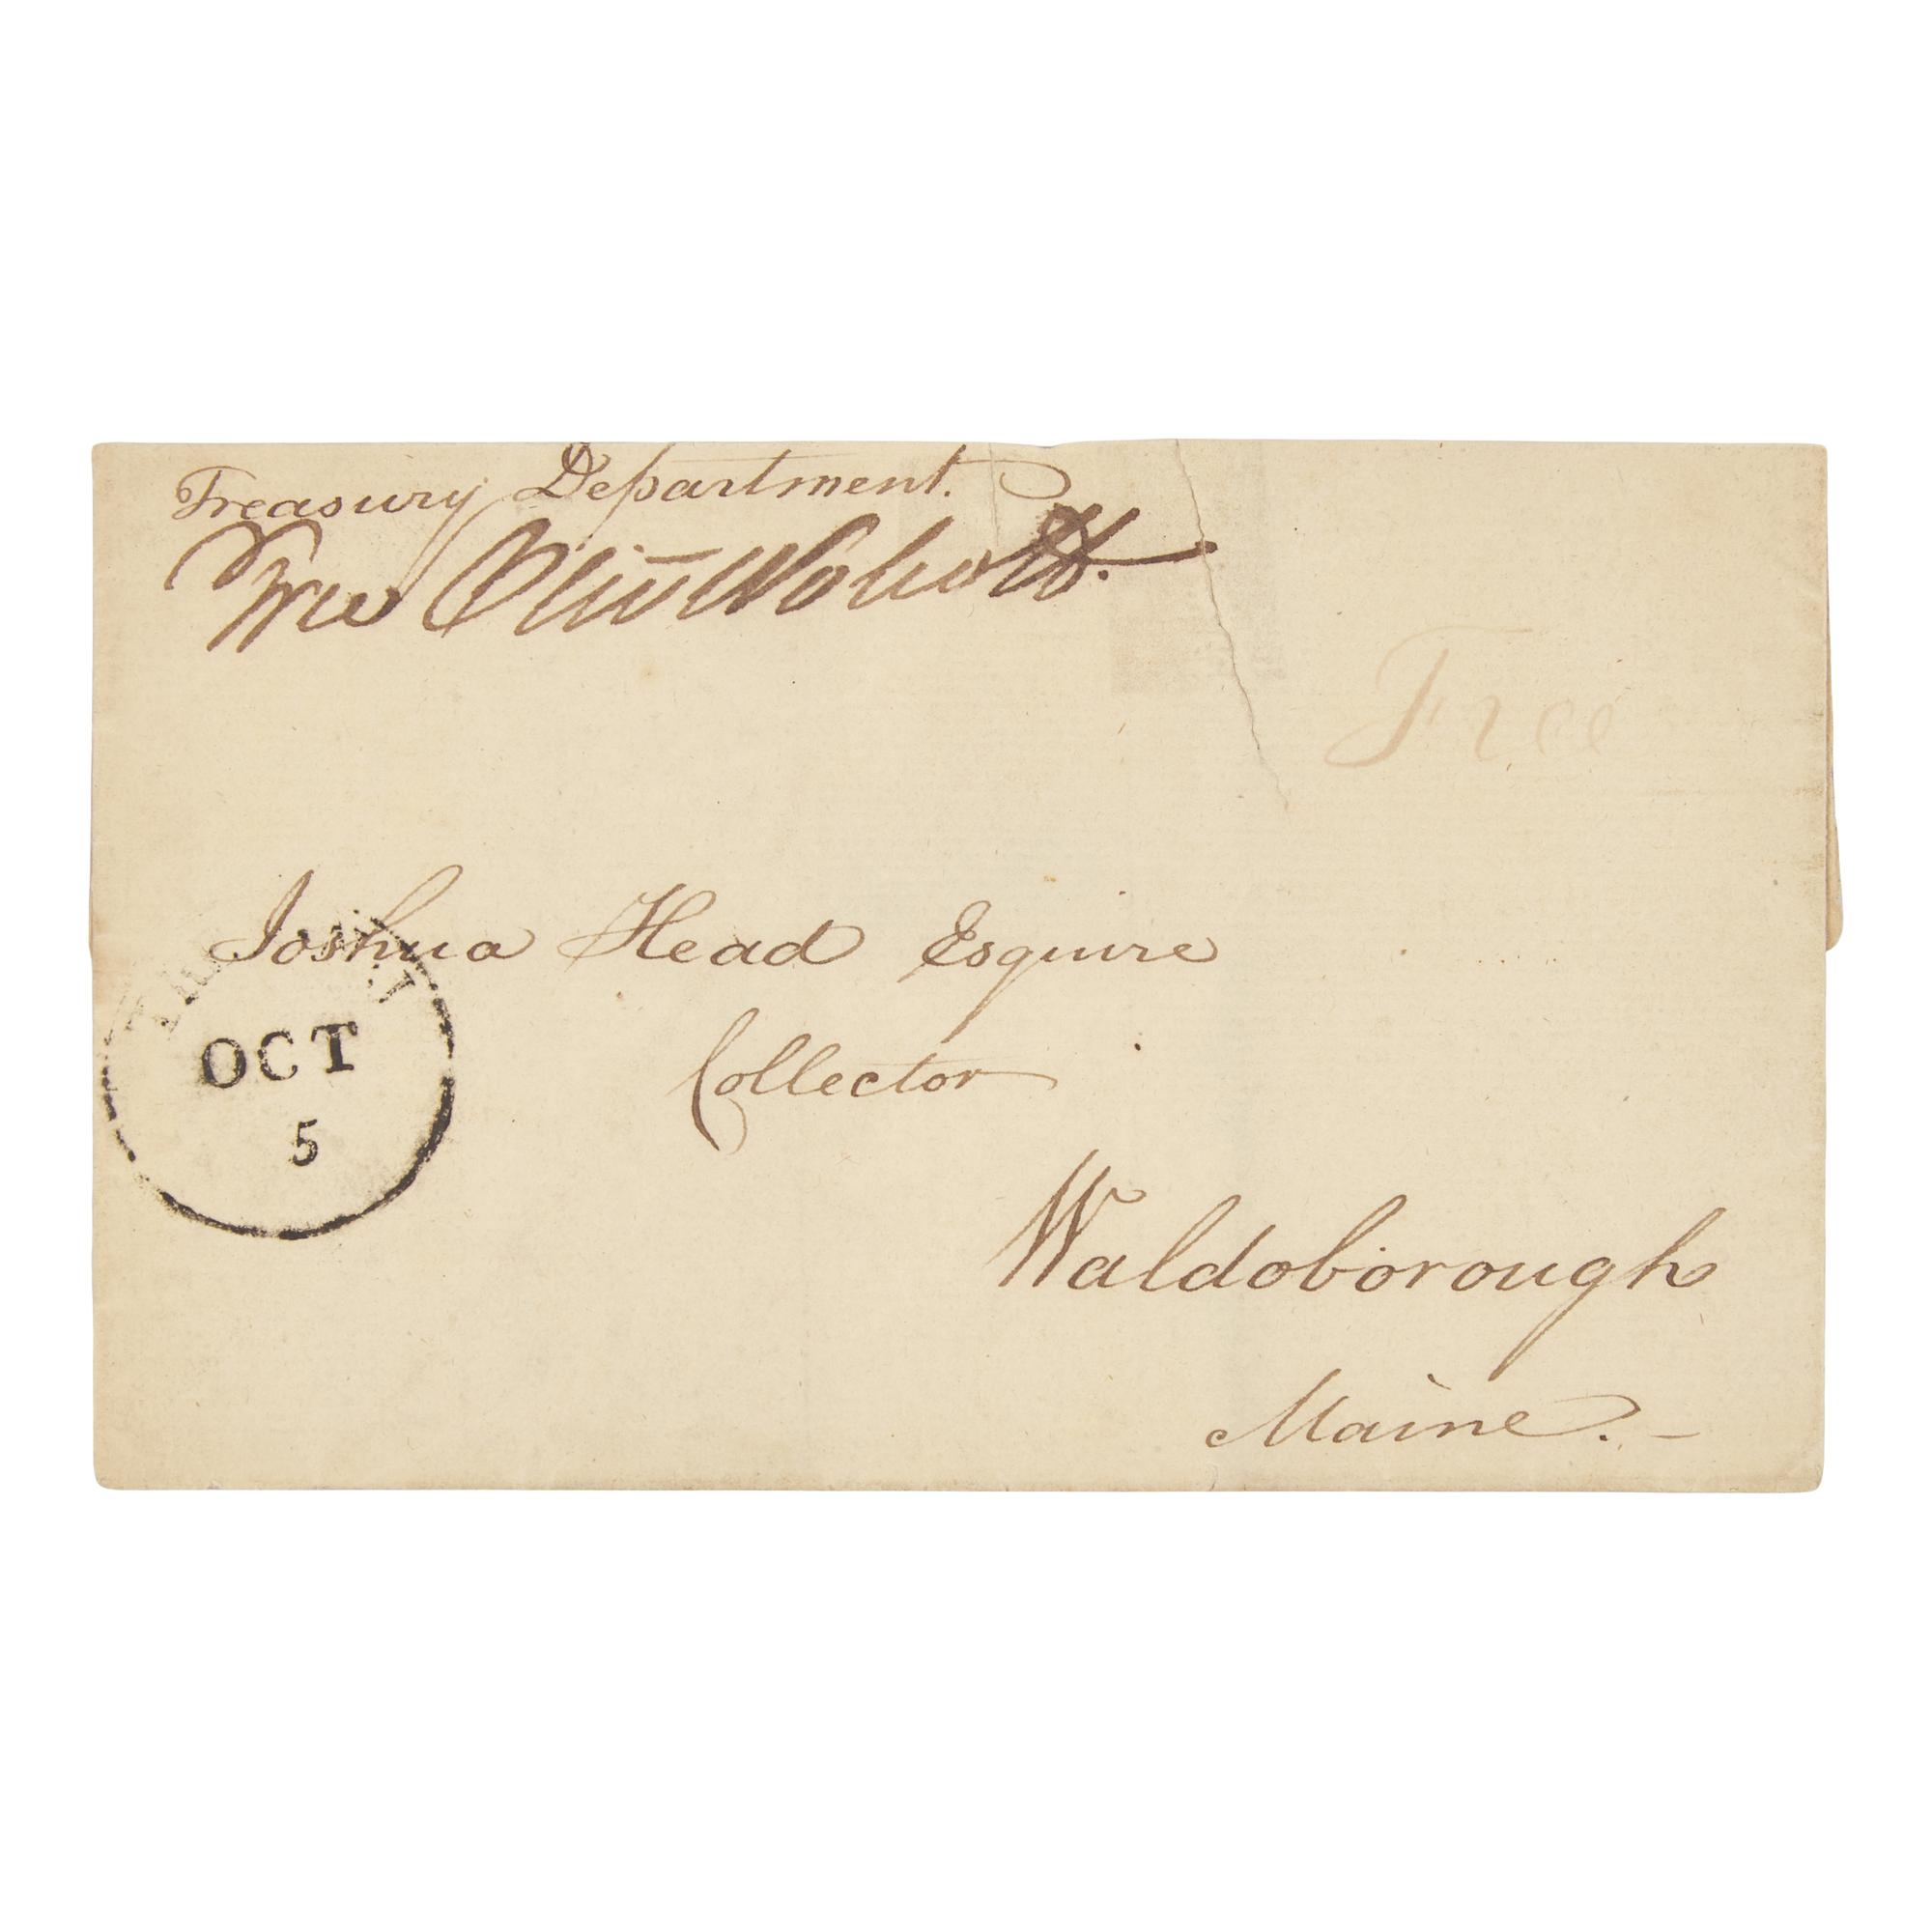 Treasury Department.
Free Oliv Wolcott.
Free
Joshua Head Esquire
OCT
5
Collector
Waldoborough
Maine. -